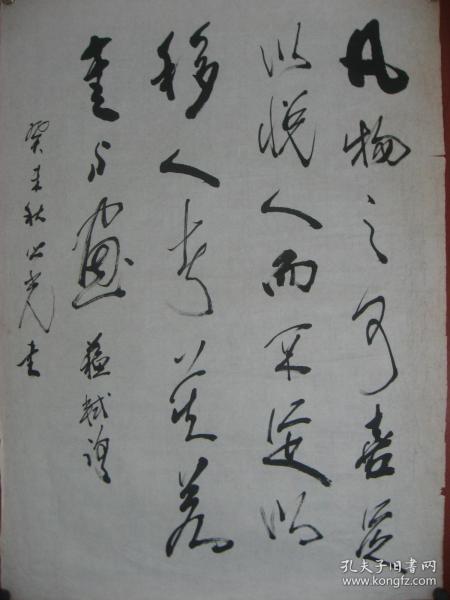 凡物之可喜足
以悦人而不足以
移人者莫若
書与畫 蘇軾語
癸未秋 書
孔夫子旧书网
www.kongfz.com